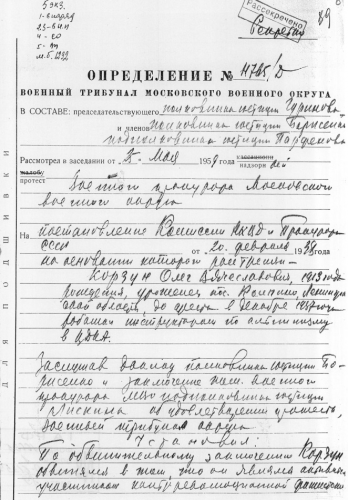 5 экз.
Рассекречено
Секретно
89
ОПРЕДЕЛЕНИЕ № 4785/0
ВОЕННЫЙ ТРИБУНАЛ МОСКОВСКОГО ВОЕННОГО ОКРУГА
В СОСТАВЕ: председательствующего полковника юстиции Гуринова
и членов полковника юстиции Борисенко
подполковника юстиции Парфенова
Рассмотрел в заседании от мая 1959 г.
надзорн.
жалобу
протест
Военного прокурора Московского
военного округа
На постановление Комиссии НКВД и Прокурора
СССР от 20 февраля 1938
на основании которой расстрелян
Корзун Олег Вячеславович, 1913 года
рождения, уроженец пос. Ленинград-
ской области, до ареста в декабре 1937 года
работал инструктором по альпинизму
в ЦДКА.
Заслушав доклад полковника юстиции Бо-
рисенко и заключение пом. военного
прокурора МВО подполковника юстиции
об удовлетворении протеста,
военный трибунал округа
Установил:
По обвинительному заключению Корзун
обвинялся в том, что он являлся активным
участником контрреволюционной фашистской
ДЛЯ ПОДШИВКИ